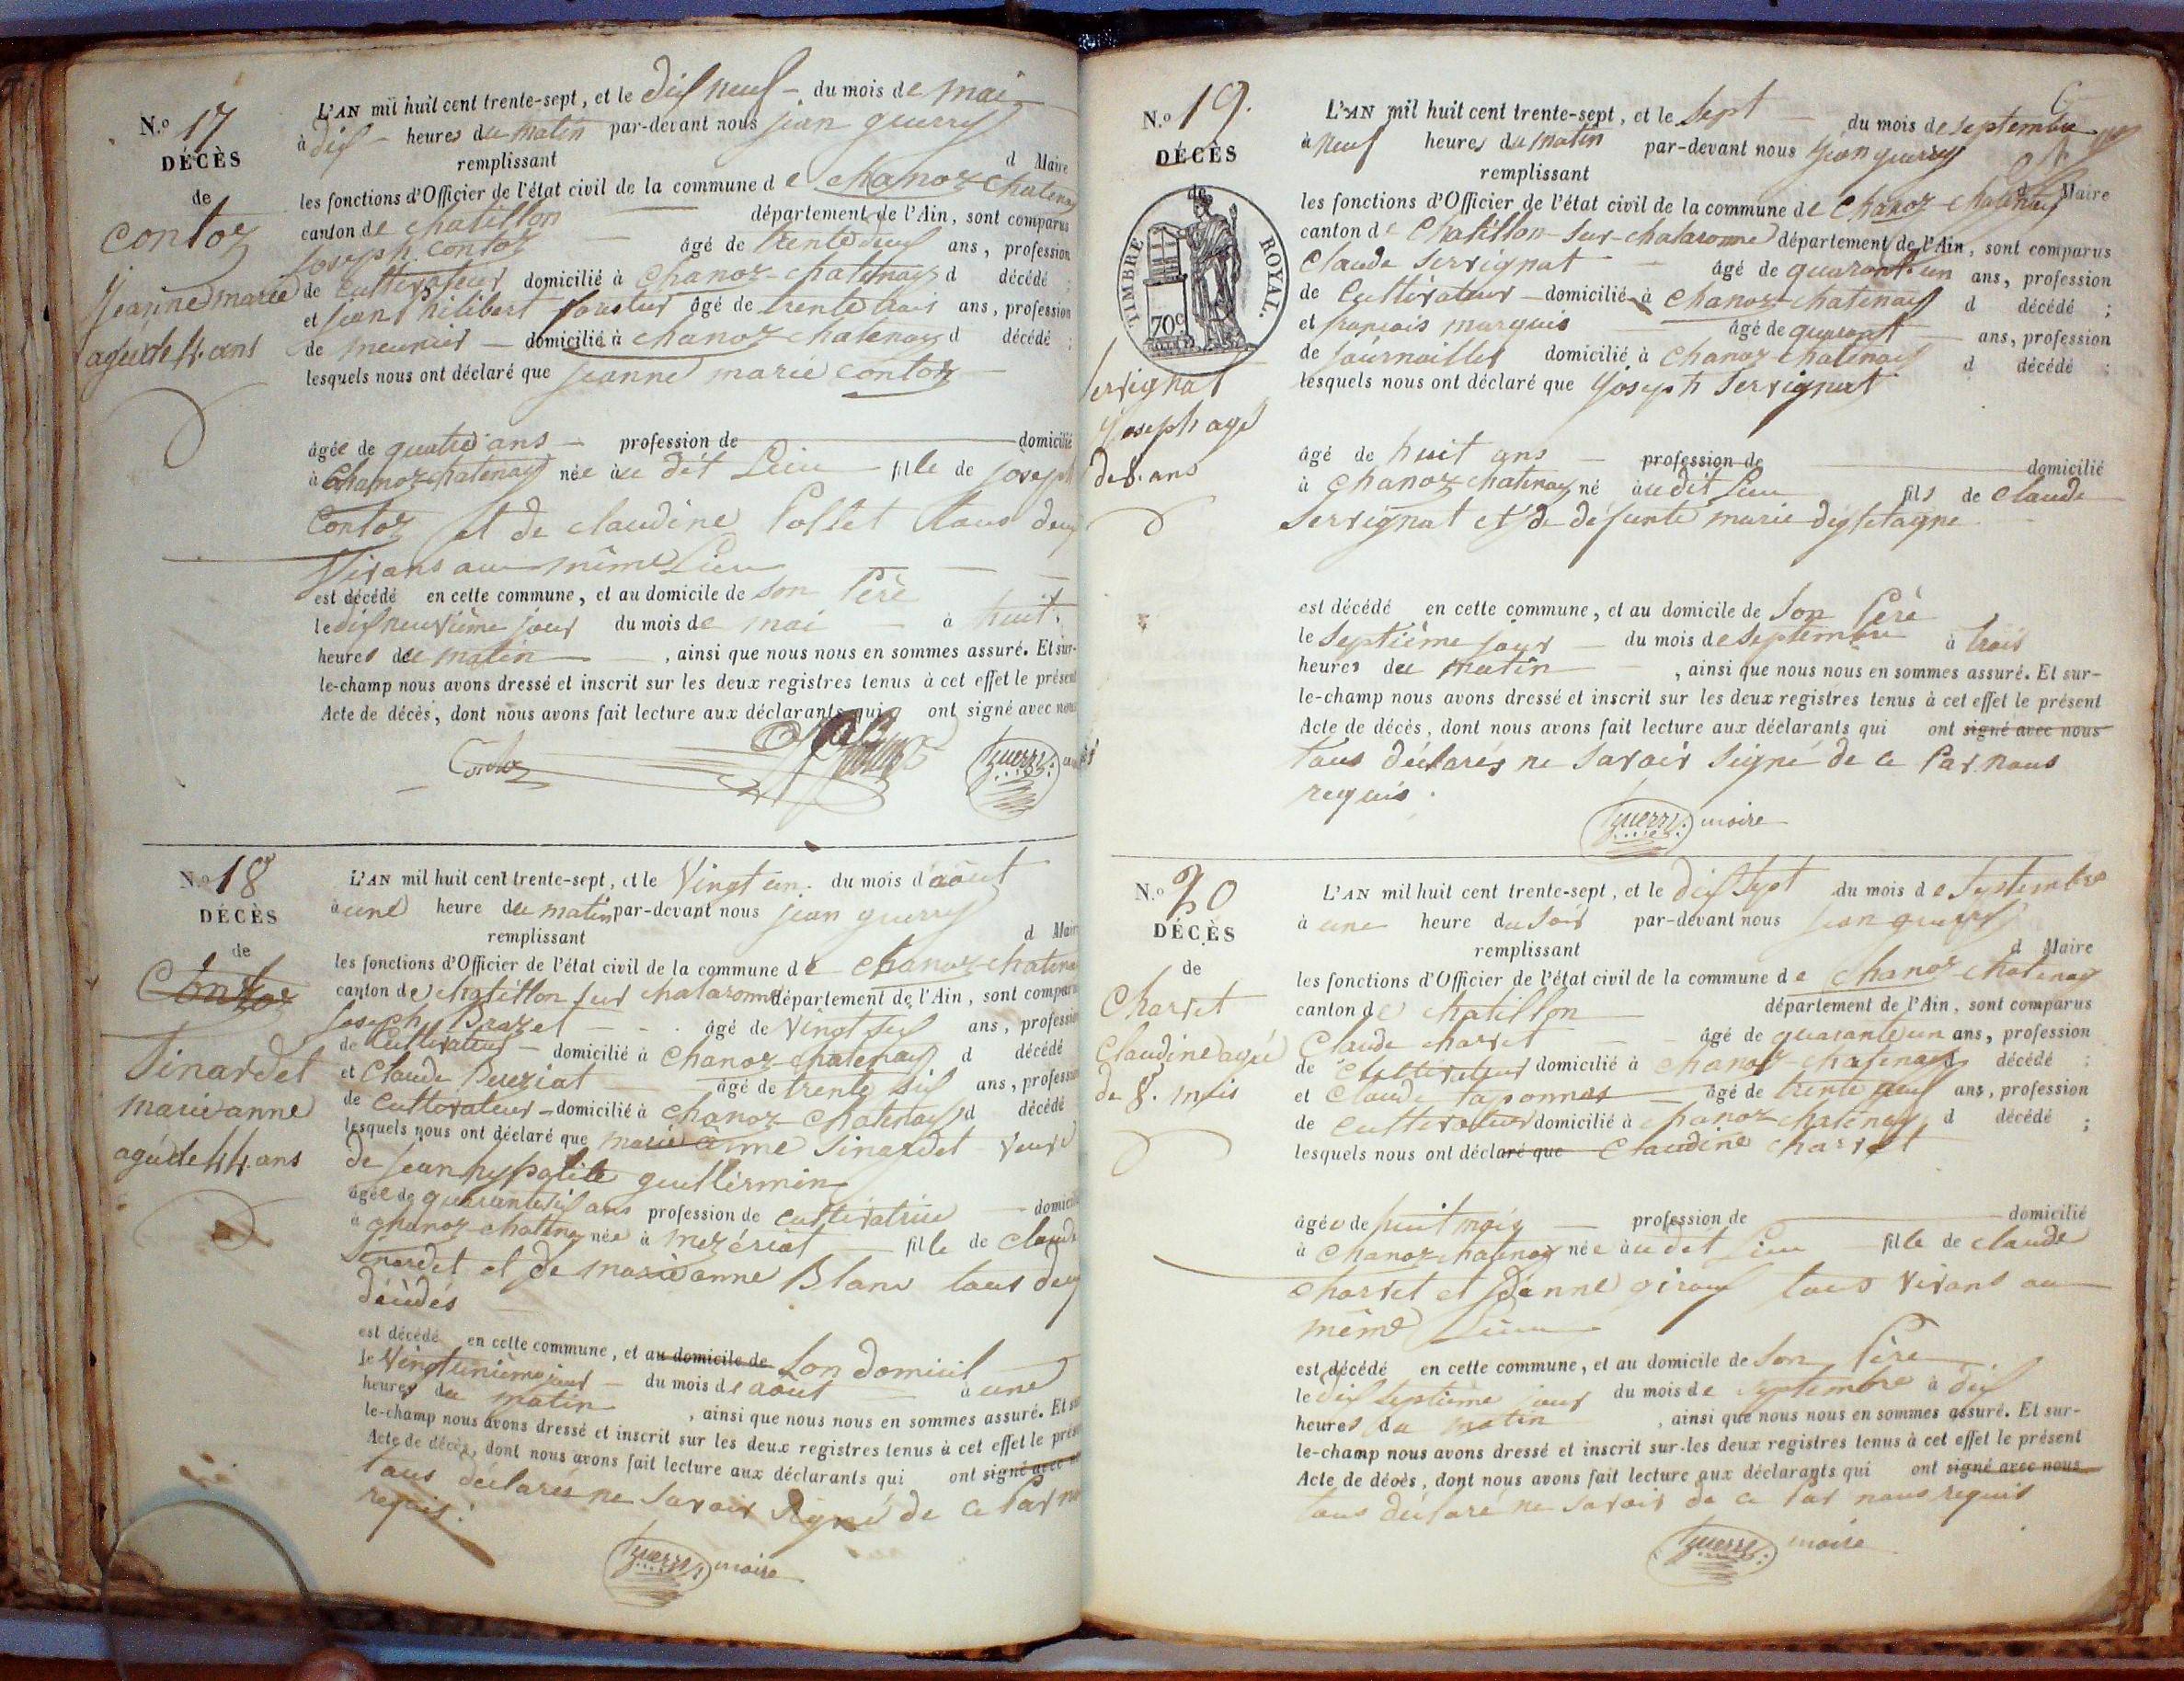 N.º 17
DÉCÈS
de
Contoz
Jeanne marie
agée de 4. ans
L'AN mil huit cent trente-sept, et le dix neuf du mois de mai
à dix heures du matin par-devant nous jean guerry
remplissant d Maire
les fonctions d'Officier de l'état civil de la commune de chanoz chatenay
canton de chatillon département de l'Ain, sont comparus
Joseph Contoz âgé de trente deux ans, profession
de cultivateur domicilié à chanoz-chatenay d décédé ;
et jean Philibert âgé de trente trois ans, profession
de meunier domicilié à chanoz-chatenay d décédé ;
lesquels nous ont déclaré que jeanne marie contoz
âgée de quatre ans profession de domicilié
à Chanoz-chatenay née au dit Lieu fille de joseph
Contoz et de claudine Pollet tous deux
Vivans au même Lieu
est décédé en cette commune, et au domicile de son Père
le dix neuvième jour du mois de mai à huit
heures du matin, ainsi que nous nous en sommes assuré. Et sur-
le-champ nous avons dressé et inscrit sur les deux registres tenus à cet effet le présent
Acte de décès, dont nous avons fait lecture aux déclarants qui ont signé avec nous
Contoz guerry
N.º 18
DÉCÈS
de
Contoz
Sinardet
marie anne
agée de 44. ans
L'AN mil huit cent trente-sept, et le Vingt un du mois d'août
à une heure du matin par-devant nous jean guerry
remplissant d Maire
les fonctions d'Officier de l'état civil de la commune de chanoz-chatenay
canton de chatillon sur chalaronne département de l'Ain, sont comparus
Joseph Brazet âgé de Vingt six ans, profession
de Cultivateur domicilié à chanoz-chatenay d décédé
et Claude Bueziat âgé de trente six ans, profession
de cultivateur domicilié à chanoz chatenay d décédé
lesquels nous ont déclaré que marie anne Sinardet veuve
de jean hypolite guillermin
âgée de quarante six ans profession de cultivatrice domicilié
à chanoz-chatenay née à mezériat fille de claude
Sinardet et de marie anne Blanc tous deux
décédés
est décédé en cette commune, et au domicile de Son domicil
le Vingt unième jour du mois de août à une
heures du matin, ainsi que nous nous en sommes assuré. Et sur-
le-champ nous avons dressé et inscrit sur les deux registres tenus à cet effet le présent
Acte de décès, dont nous avons fait lecture aux déclarants qui ont signé avec nous
tous déclarés ne savoir signé de ce par nous
requis.
guerry maire
N.º 19.
DÉCÈS
de
TIMBRE ROYAL.
70c
Servignat
Joseph agé
de 8. ans
L'AN mil huit cent trente-sept, et le sept du mois de septembre
à neuf heures du matin par-devant nous jean guerry
remplissant d Maire
les fonctions d'Officier de l'état civil de la commune de chanoz-chatenay
canton de Chatillon-sur-chalaronne département de l'Ain, sont comparus
Claude Servignat âgé de quarante un ans, profession
de cultivateur domicilié à chanoz-chatenay d décédé ;
et françois marquis âgé de quarant ans, profession
de journaillet domicilié à chanoz-chatenay d décédé ;
lesquels nous ont déclaré que Joseph Servignat
âgé de huit ans profession de domicilié
à chanoz chatenay né au dit Lieu fils de claude
Servignat et de défunte marie
est décédé en cette commune, et au domicile de Son Père
le septième jour du mois de septembre à trois
heures du matin, ainsi que nous nous en sommes assuré. Et sur-
le-champ nous avons dressé et inscrit sur les deux registres tenus à cet effet le présent
Acte de décès, dont nous avons fait lecture aux déclarants qui ont signé avec nous
tous déclarés ne savoir signé de ce Par nous
requis.
guerry maire
N.º 20
DÉCÈS
de
Charvet
Claudine agée
de 8. mois
L'AN mil huit cent trente-sept, et le dix sept du mois de septembre
à une heure du soir par-devant nous jean guerry
remplissant d Maire
les fonctions d'Officier de l'état civil de la commune de chanoz-chatenay
canton de chatillon département de l'Ain, sont comparus
Claude charvet âgé de quarante un ans, profession
de cultivateur domicilié à chanoz-chatenay décédé ;
et Claude taponnas âgé de trente neuf ans, profession
de cultivateur domicilié à chanoz chatenay d décédé ;
lesquels nous ont déclaré que Claudine charvet
âgée de huit mois profession de domicilié
à chanoz chatenay née au dit Lieu fille de claude
charvet et tous vivans au
même Lieu
est décédé en cette commune, et au domicile de son Père
le dix septième jour du mois de septembre à dix
heures du matin, ainsi que nous nous en sommes assuré. Et sur-
le-champ nous avons dressé et inscrit sur les deux registres tenus à cet effet le présent
Acte de décès, dont nous avons fait lecture aux déclarants qui ont signé avec nous
tous déclaré ne savoir de ce par nous requis
guerry maire